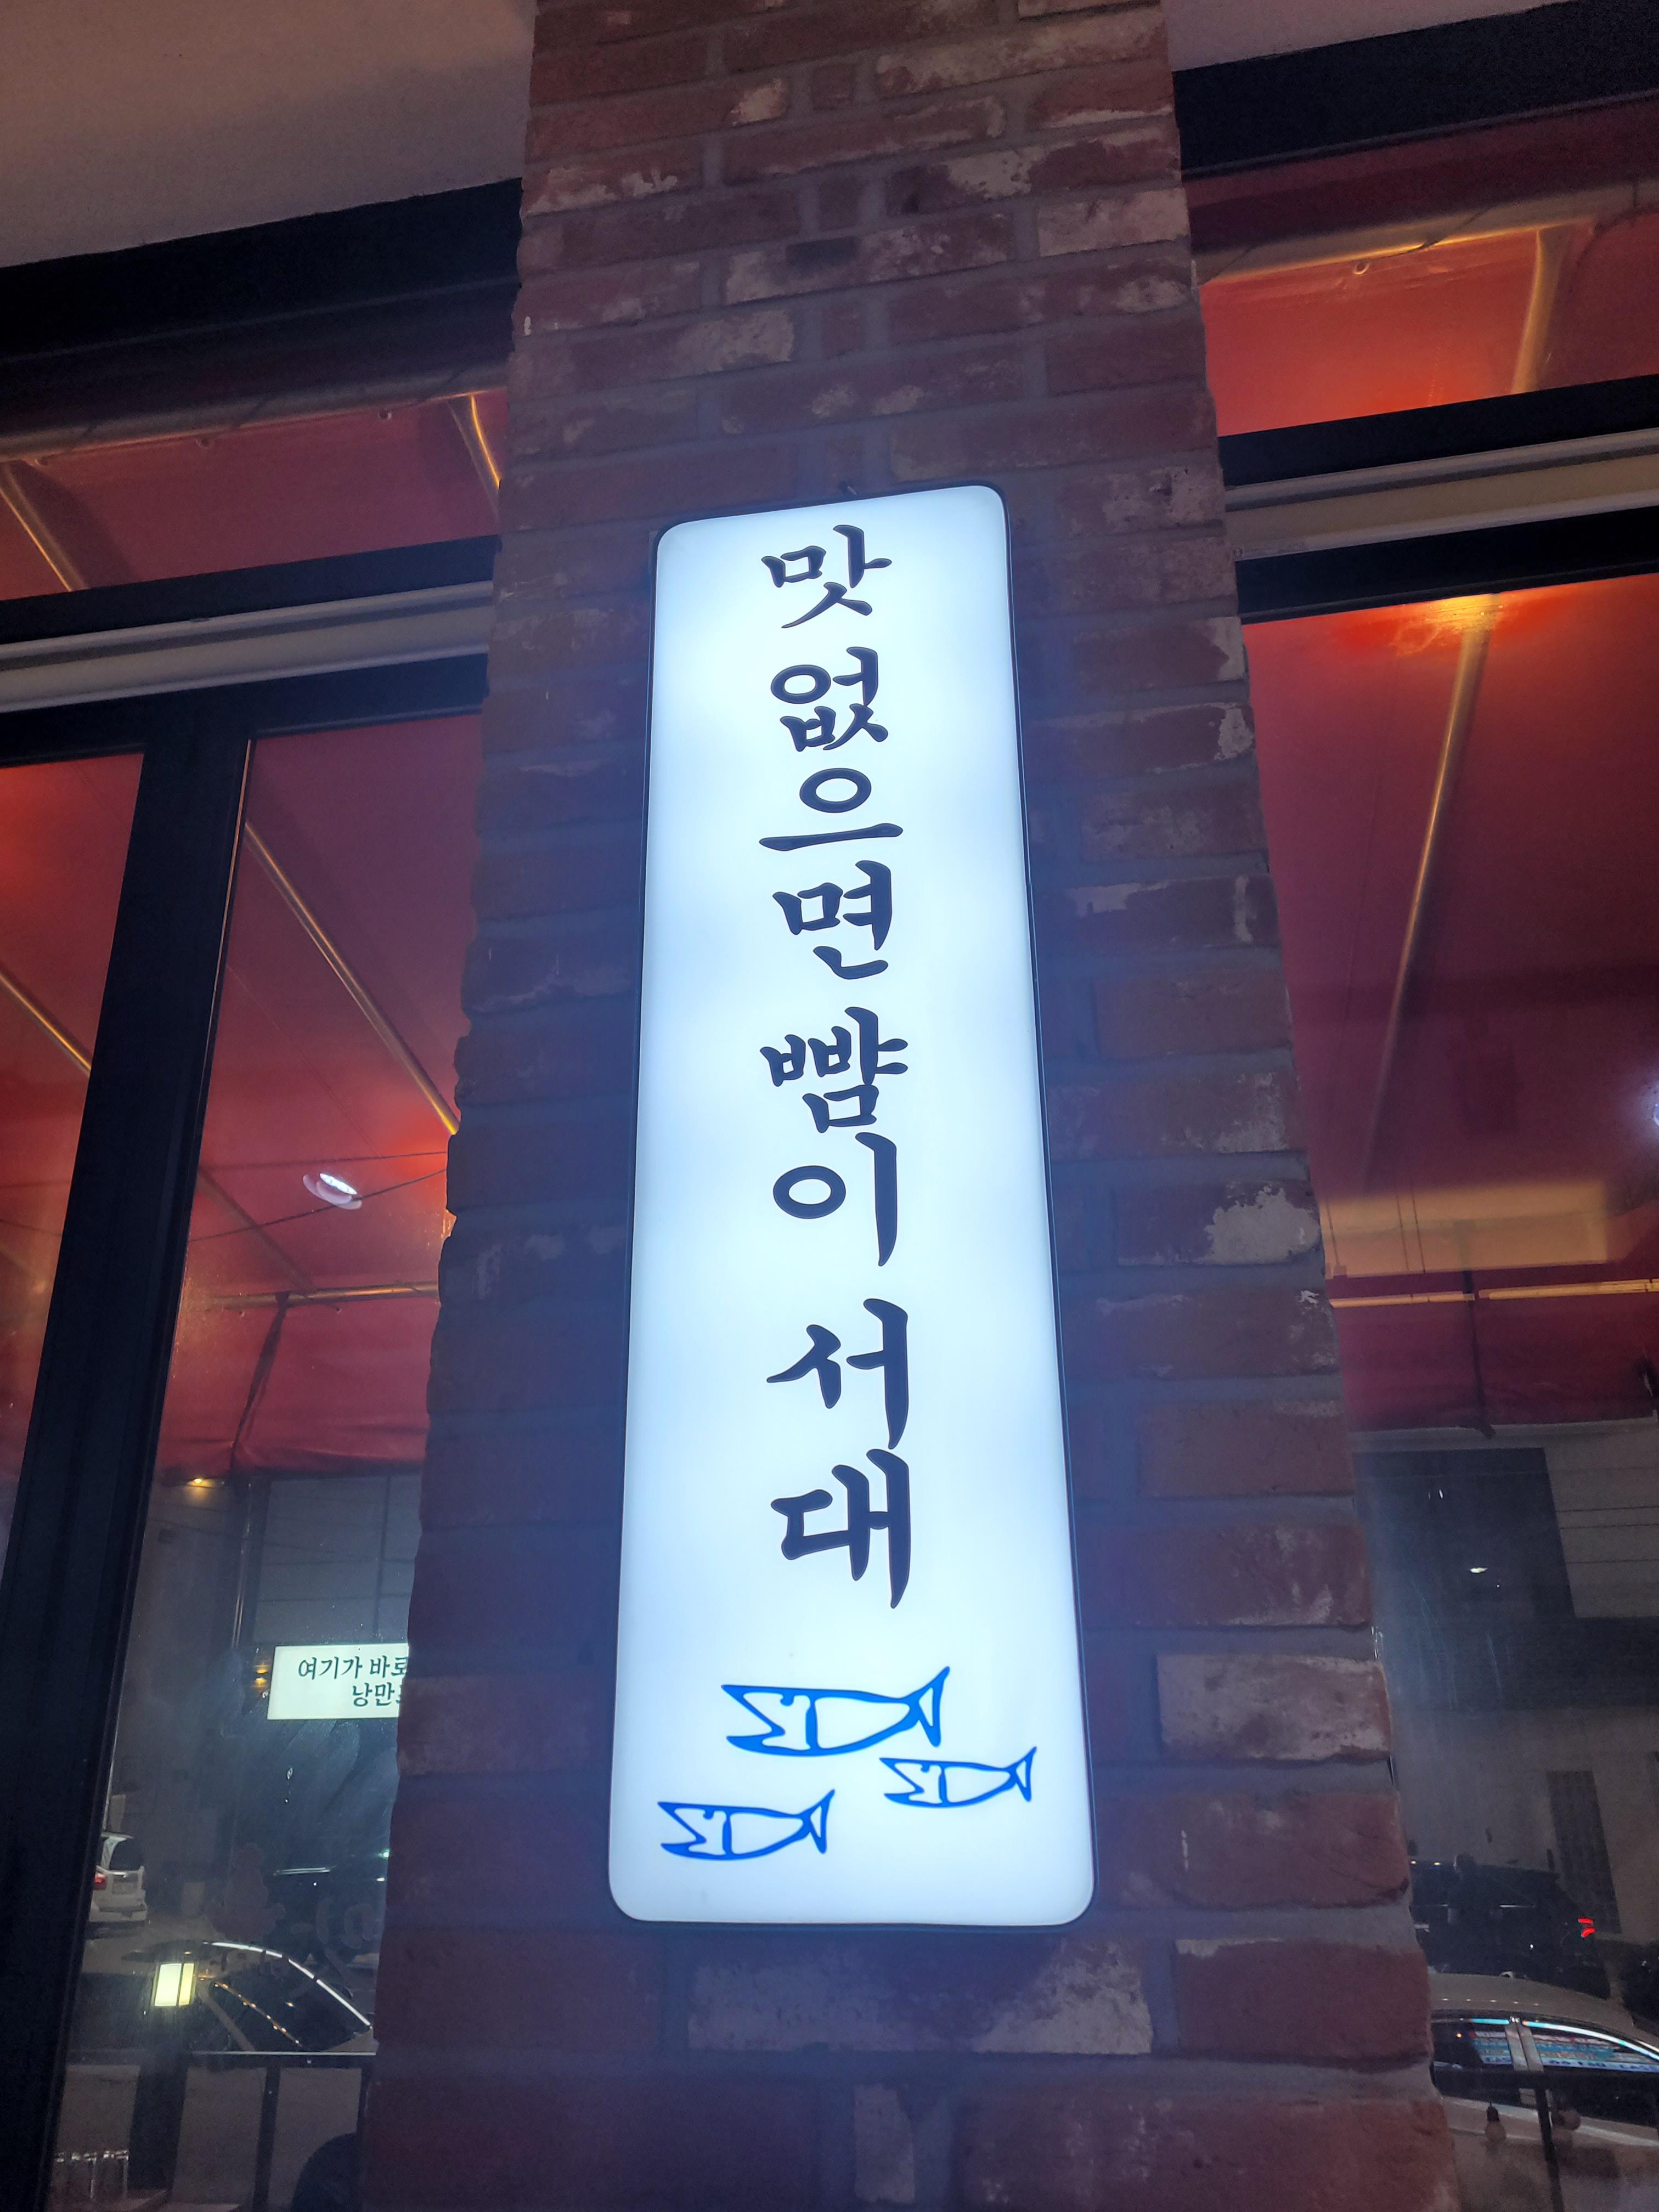 맛 없으면 뺨이 서대
여기가 바로
낭만